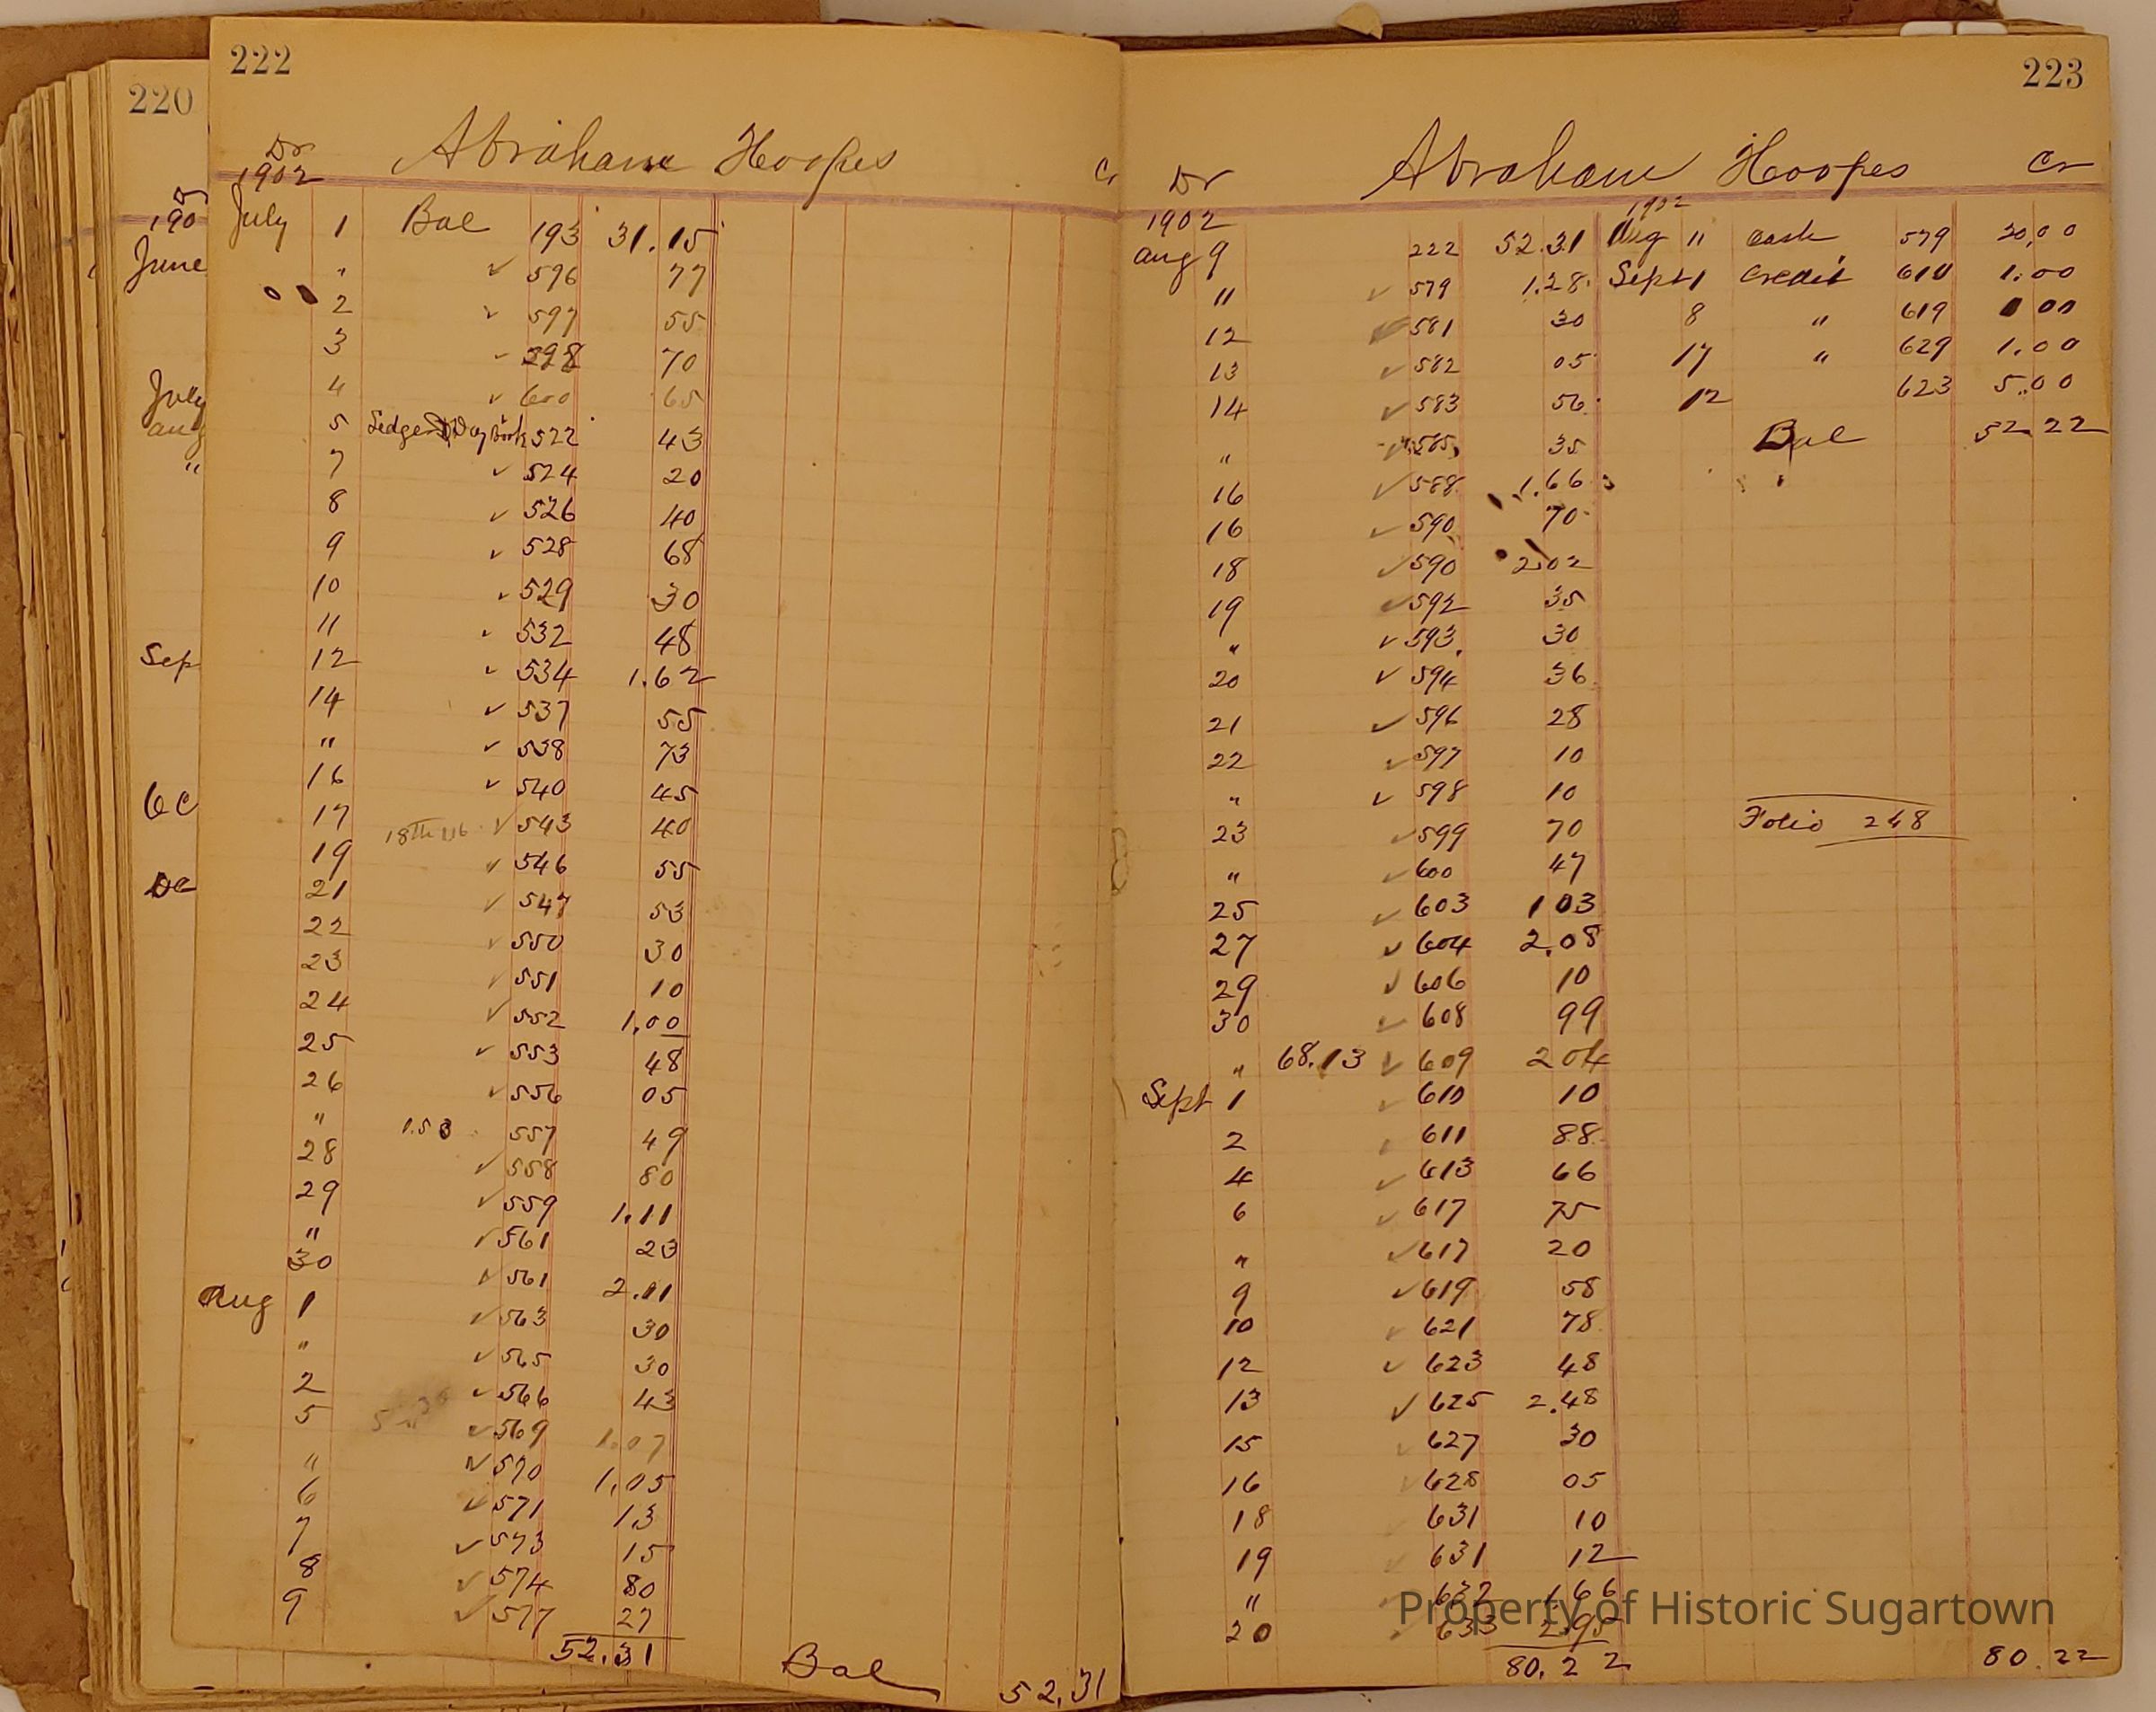 220
190
June
July
aug
"
Sep
222
Dr Abraham Hoopes Cr
1902
July 1 Bal 193 31.15
" ✓ 596 77
2 ✓ 597 55
3 - 598 70
4 ✓ 600 65
5 Ledger Day Book 522 43
7 ✓ 524 20
8 ✓ 526 40
9 ✓ 528 68
10 ✓ 529 30
11 ✓ 532 48
12 ✓ 534 1.62
14 ✓ 537 55
" ✓ 538 73
16 ✓ 540 45
17 18th ✓ 543 40
19 ✓ 546 55
21 ✓ 547 53
22 ✓ 550 30
23 ✓ 551 10
24 ✓ 552 1,00
25 ✓ 553 48
26 ✓ 556 05
" 1.53 557 49
28 ✓ 558 80
29 ✓ 559 1.11
" ✓ 561 23
30 ✓ 561 2.11
Aug 1 ✓ 563 30
" ✓ 565 30
2 ✓ 566 43
5 ✓ 569 1.07
" ✓ 570 1,05
6 ✓ 571 13
7 ✓ 573 15
8 ✓ 574 80
9 ✓ 577 27
52.31 Bal 52,31
223
Dr Abraham Hoopes Cr
1902 1902
aug 9 222 52.31 Aug 11 Cash 579 20,00
11 ✓ 579 1.28 Sept 1 Credit 610 1.00
12 ✓ 581 30 8 " 619 00
13 ✓ 582 05 17 " 629 1.00
14 ✓ 583 56 12 623 5.00
" ✓ 585 35 Bal 52.22
16 ✓ 588 1.66
16 ✓ 590 70
18 ✓ 590 2.02
19 ✓ 592 35
" ✓ 593 30
20 ✓ 594 36
21 ✓ 596 28
22 ✓ 597 10
" ✓ 598 10
23 ✓ 599 70 Folio 248
" ✓ 600 47
25 ✓ 603 1 03
27 ✓ 604 2.08
29 ✓ 606 10
30 ✓ 608 99
" 68.13 ✓ 609 2 04
Sept 1 ✓ 610 10
2 ✓ 611 88
4 ✓ 613 66
6 ✓ 617 75
" ✓ 617 20
9 ✓ 619 58
10 ✓ 621 78
12 ✓ 623 48
13 ✓ 625 2.48
15 ✓ 627 30
16 ✓ 628 05
18 631 10
19 ✓ 631 12
" ✓ 632 1 66
20 ✓ 633 2.95
80.22 80.22
Property of Historic Sugartown